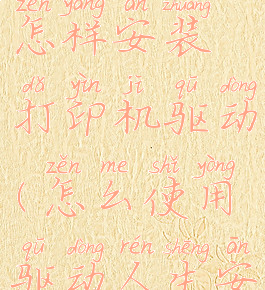 zěn yàng ān zhuāng
怎样安装
dǎ yìn jī qū dòng
打印机驱动
zěn me shǐ yòng
(怎么使用
qū dòng rén shēng ān
驱动人生安